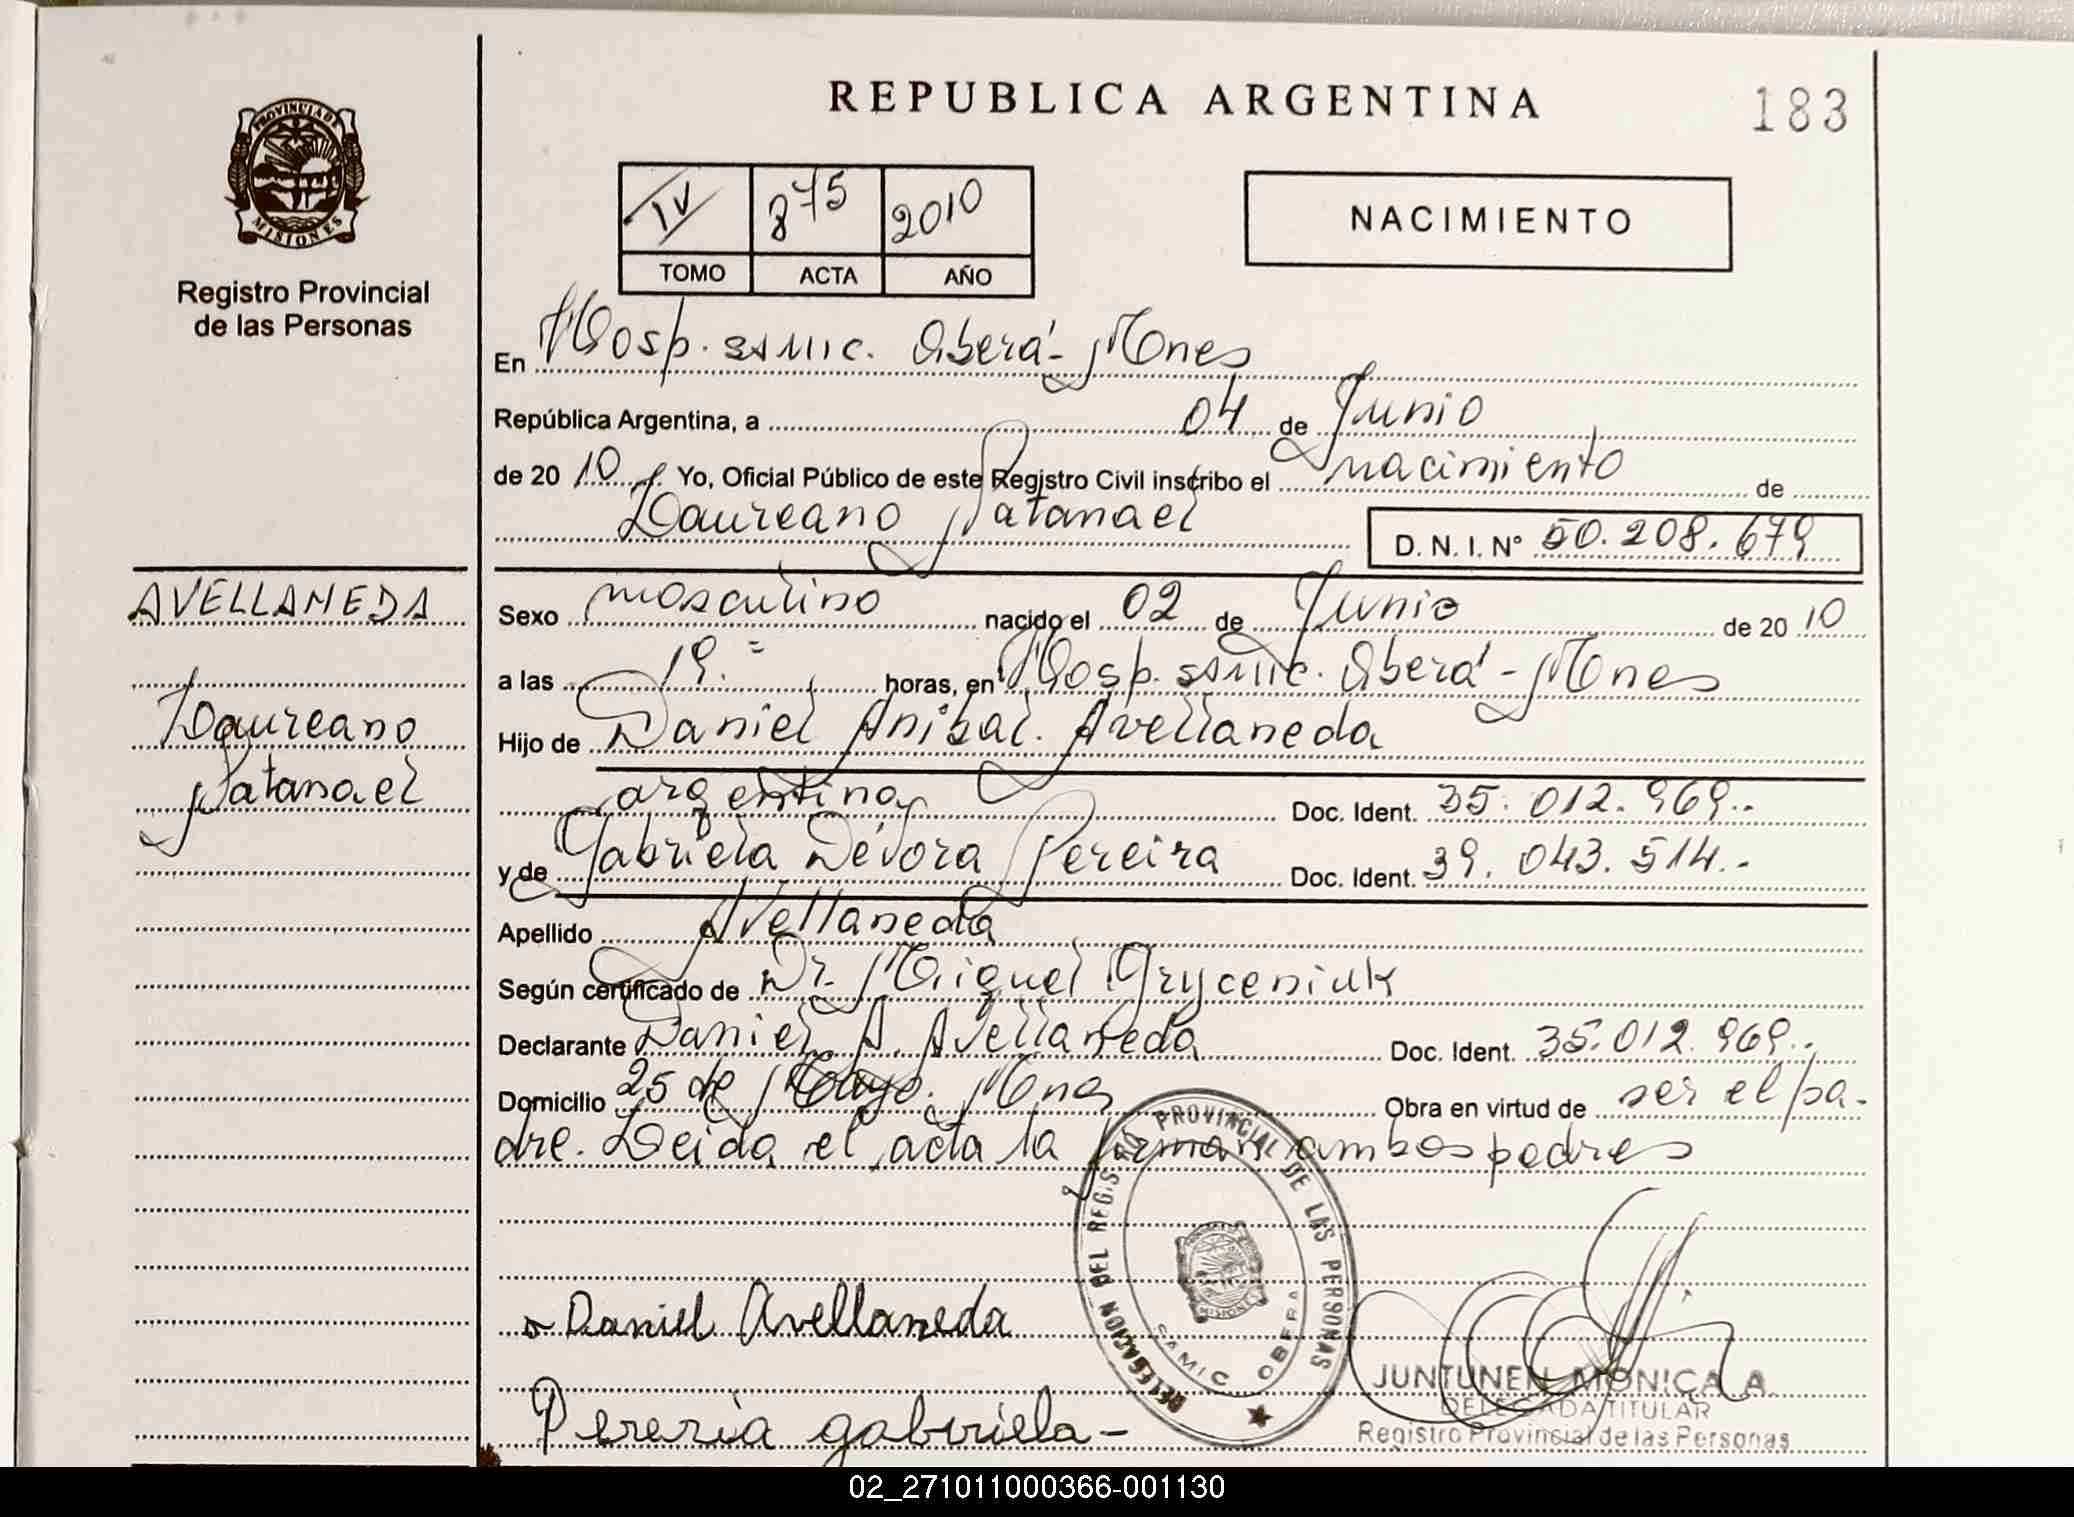 REPUBLICA ARGENTINA
183
PROVINCIA DE
MISIONES
Registro Provincial
de las Personas
IV 875 2010
TOMO ACTA AÑO
NACIMIENTO
En Hosp. SAMIC. Oberá - Mnes
República Argentina, a 04 de Junio
de 20 10 Yo, Oficial Público de este Registro Civil inscribo el nacimiento de
Laureano Natanael
D. N. I. N° 50.208.679
AVELLANEDA
Laureano
Natanael
Sexo masculino nacido el 02 de Junio de 20 10
a las 19.= horas, en Hosp. SAMIC. Oberá - Mnes
Hijo de Daniel Anibal. Avellaneda
argentino Doc. Ident. 35.012.969.-
y de Gabriela Dévora Pereira Doc. Ident. 39.043.514.-
Apellido Avellaneda
Según certificado de Dr. Miguel Gryceniuk
Declarante Daniel A. Avellaneda Doc. Ident. 35.012.969.-
Domicilio 25 de Mayo. Mnes Obra en virtud de ser el pa-
dre. Leida el acta la firman ambos padres
DELEGACION DEL REGISTRO PROVINCIAL DE LAS PERSONAS
MISIONES
SAMIC OBERA
Daniel Avellaneda
Pereria gabriela -
JUNTUNEN MONICA A.
DELEGADA TITULAR
Registro Provincial de las Personas
02_271011000366-001130